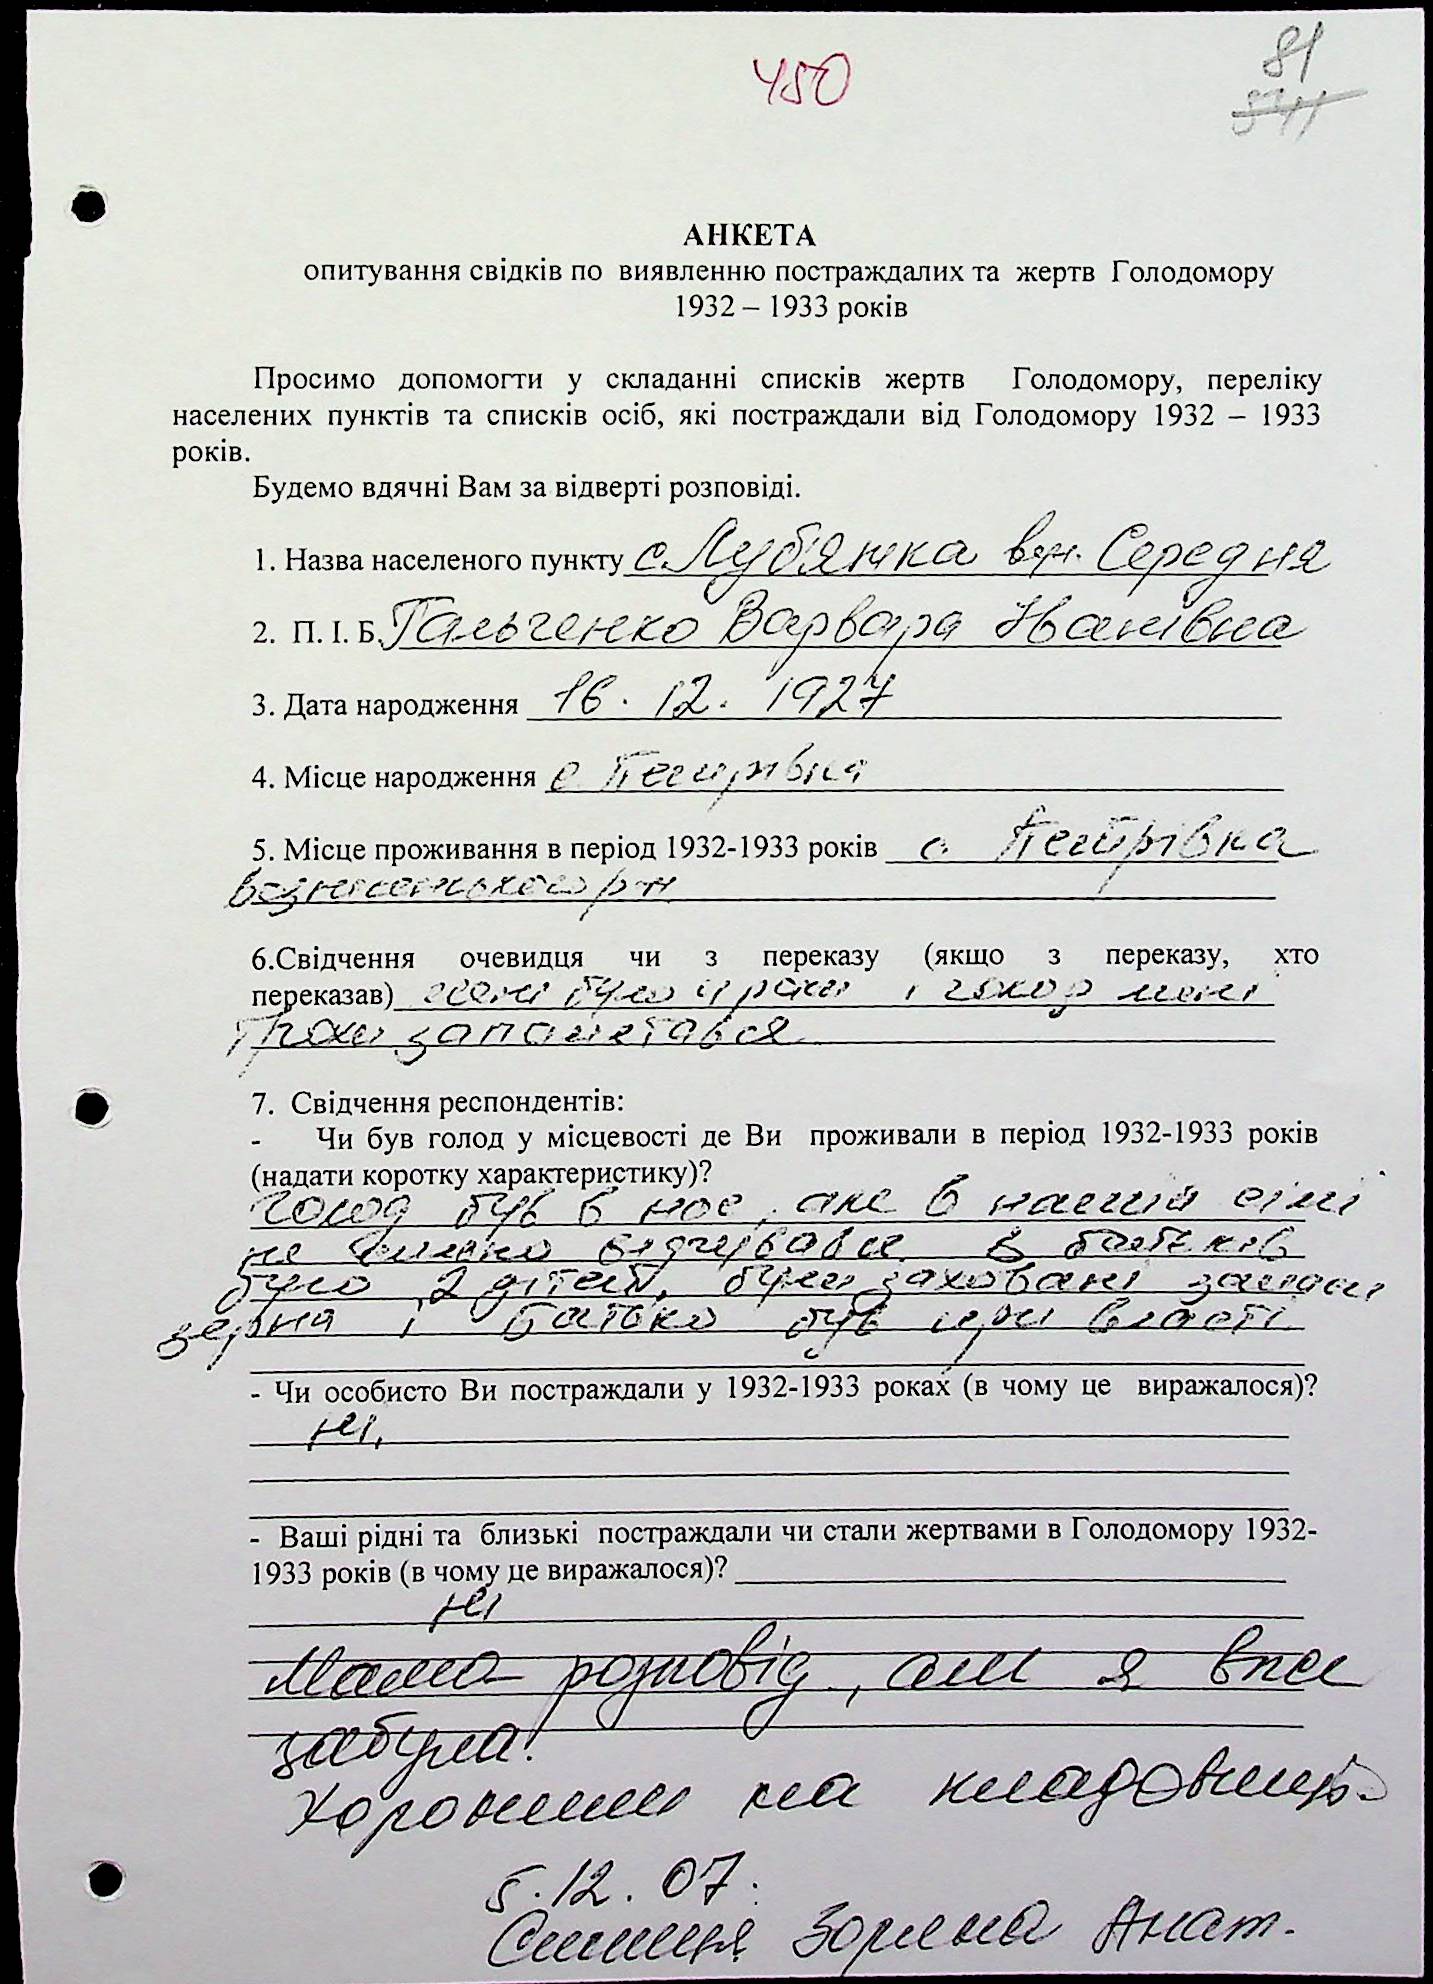 450
81
АНКЕТА
опитування свідків по виявленню постраждалих та жертв Голодомору
1932 – 1933 років
Просимо допомогти у складанні списків жертв Голодомору, переліку
населених пунктів та списків осіб, які постраждали від Голодомору 1932 – 1933
років.
Будемо вдячні Вам за відверті розповіді.
1. Назва населеного пункту с. Луб'янка вул. Середня
2. П. І. Б. Гальченко Варвара Іванівна
3. Дата народження 16. 12. 1927
4. Місце народження с. Петрівка
5. Місце проживання в період 1932-1933 років с. Петрівка
р-н
6.Свідчення очевидця чи з переказу (якщо з переказу, хто
переказав) мені було 4 роки і голод мені
трохи запамятався
7. Свідчення респондентів:
- Чи був голод у місцевості де Ви проживали в період 1932-1933 років
(надати коротку характеристику)?
Голод був в нас, але в нашій сімі
не сильно відчувався. В батьків
було 2 дітей, були заховані запаси
зерна і батько був при власті.
- Чи особисто Ви постраждали у 1932-1933 роках (в чому це виражалося)?
ні,
- Ваші рідні та близькі постраждали чи стали жертвами в Голодомору 1932-
1933 років (в чому це виражалося)?
ні
Мама розповід., але я вже
забула.
Хоронили на кладовищі.
5. 12. 07.
Синиця Зоряна Анат.